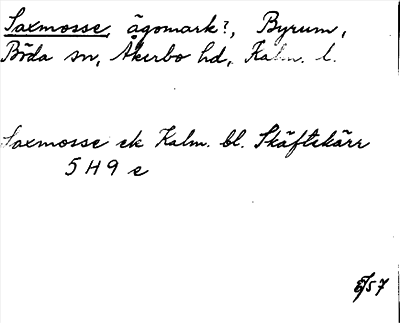 Saxmosse, ägomark?, Byrum,
Böda sn, Åkerbo hd, Kalm. l.
Saxmosse ek Kalm. bl. Skäftekärr
5 H 9 e
57